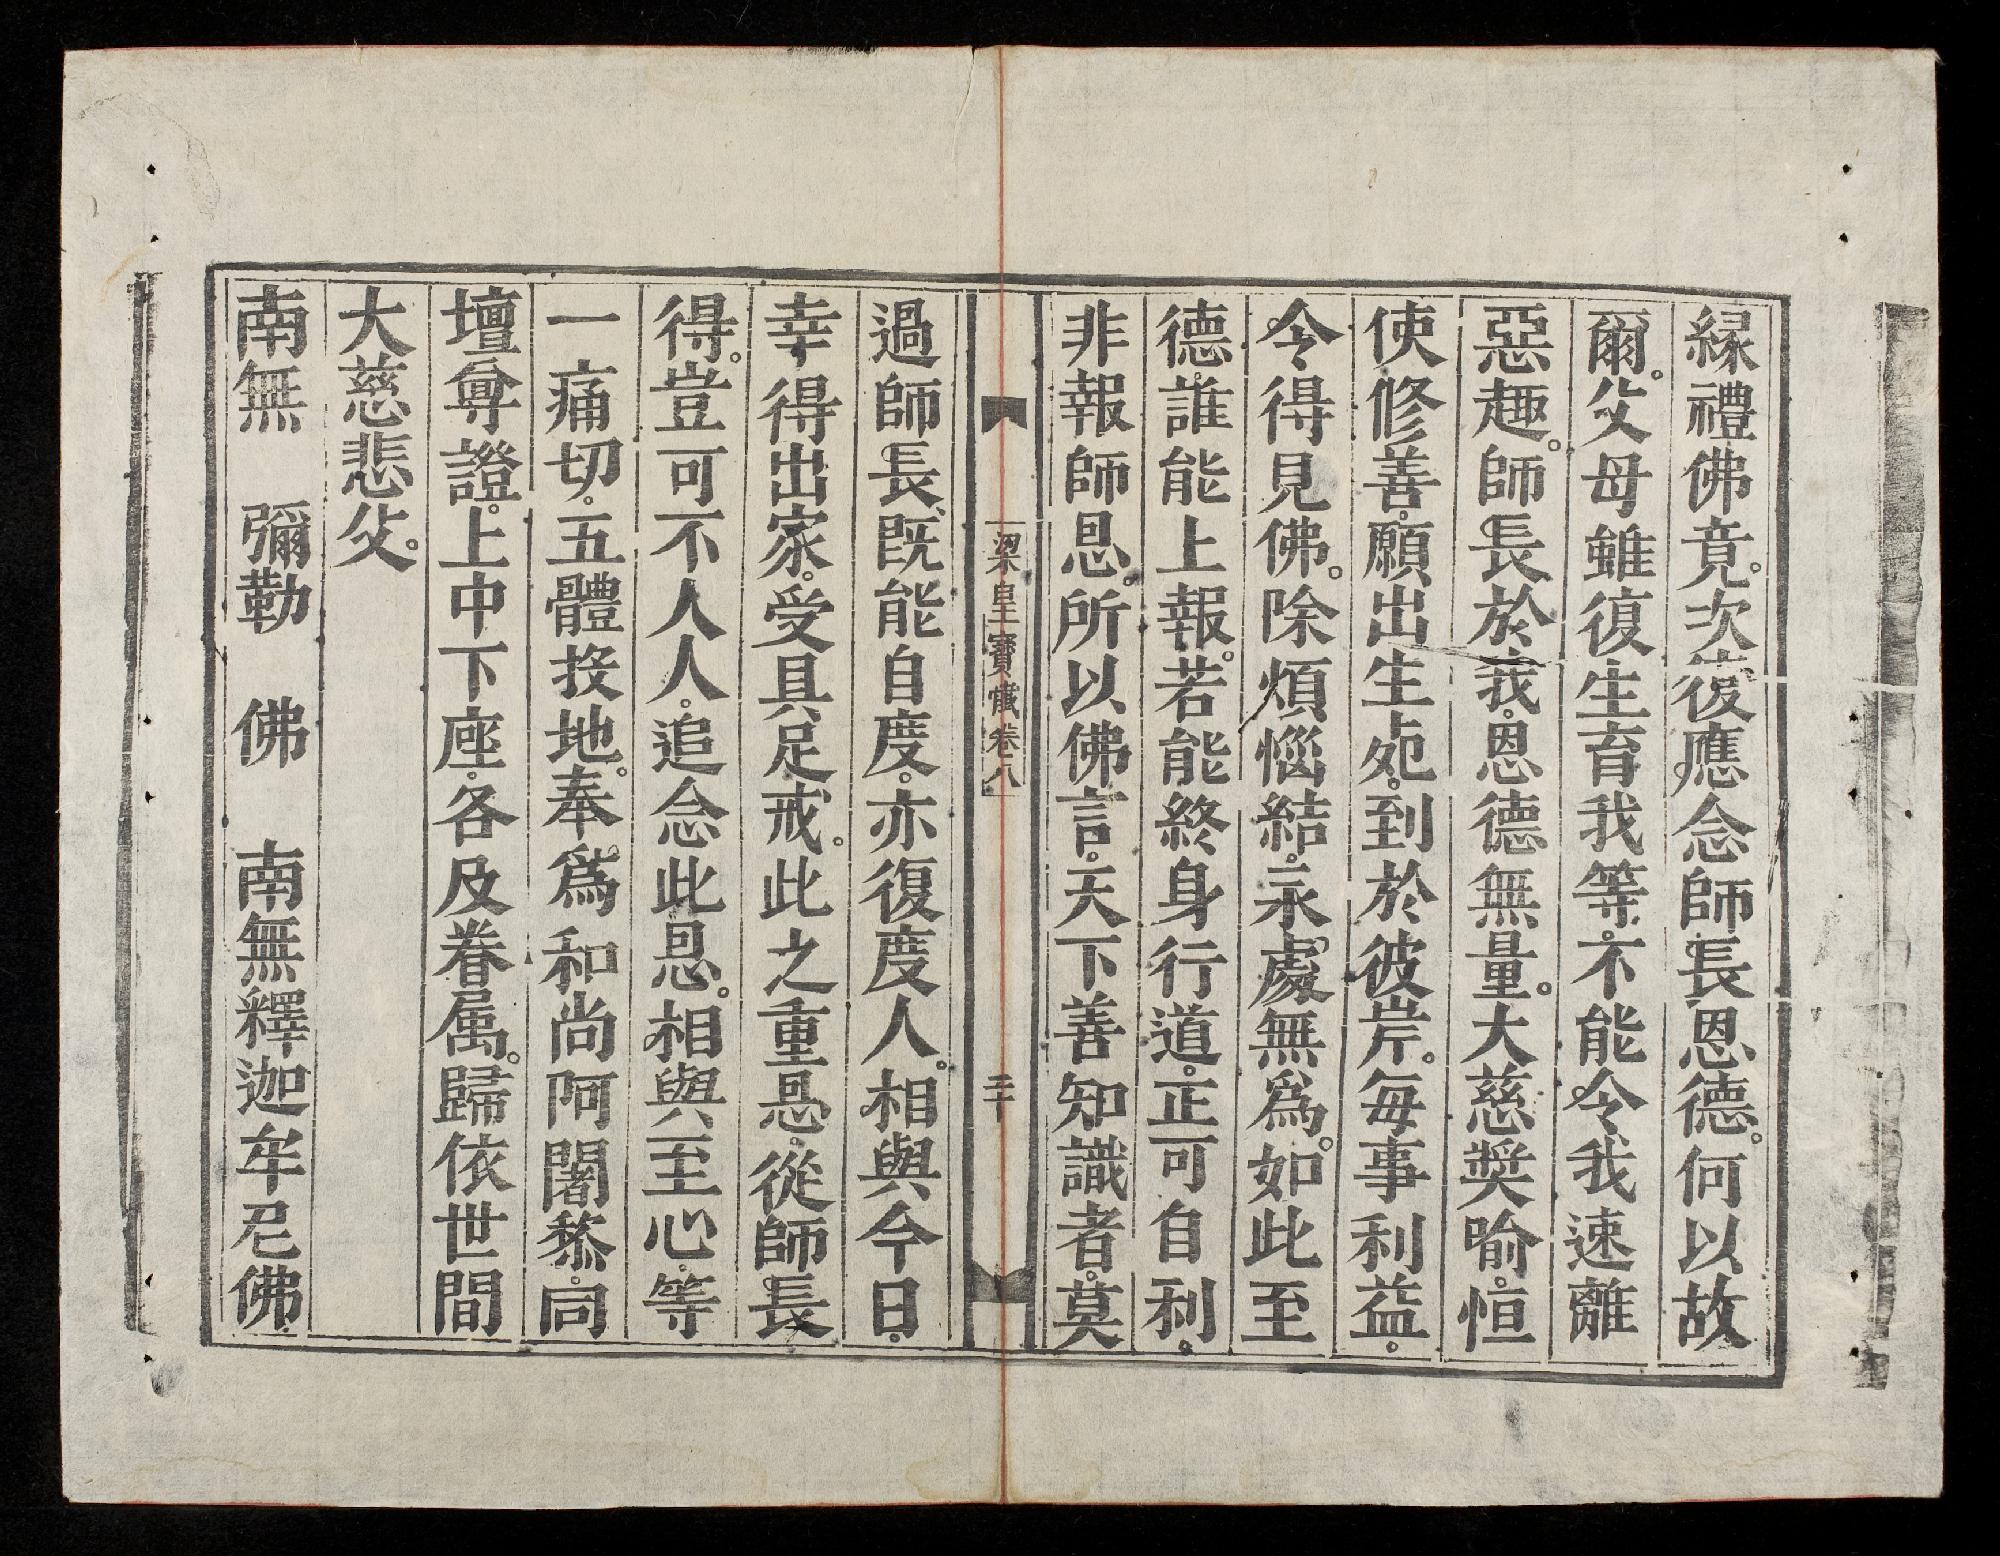 緣禮佛竟。次復應念師長恩德。何以故
爾。父母雖復生育我等。不能令我速離
惡趣。師長於我。恩德無量。大慈奬喻。恒
使修善。願出生死。到於彼岸。每事利益。
令得見佛。除煩惱結。永處無爲。如此至
德。誰能上報。若能終身行道。正可自利。
非報師恩。所以佛言。天下善知識者。莫
梁皇寶懺卷八
二十
過師長。既能自度。亦復度人。相與今日。
幸得出家。受具足戒。此之重恩。從師長
得。豈可不人人。追念此恩。相與至心。等
一痛切。五體投地。奉爲和尚阿闍黎。同
壇尊證。上中下座。各及眷属。歸依世間
大慈悲父。
南無　彌勒　佛　南無釋迦牟尼佛